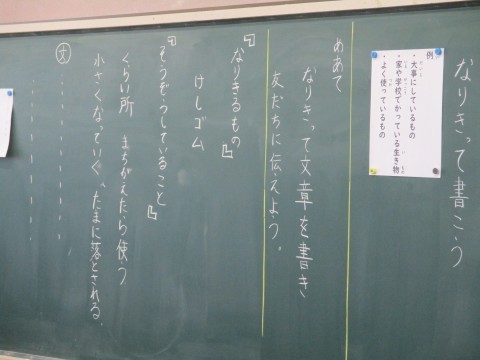 なりきって書こう
例
・大事にしているもの
・家や学校でかっている生き物
・よく使っているもの
めあて
なりきって文章を書き
友だちに伝えよう。
『なりきるもの』
けしゴム
『そうぞうしていること』
くらい所 まちがえたら使う
小さくなっていく、たまに落とされる。
文